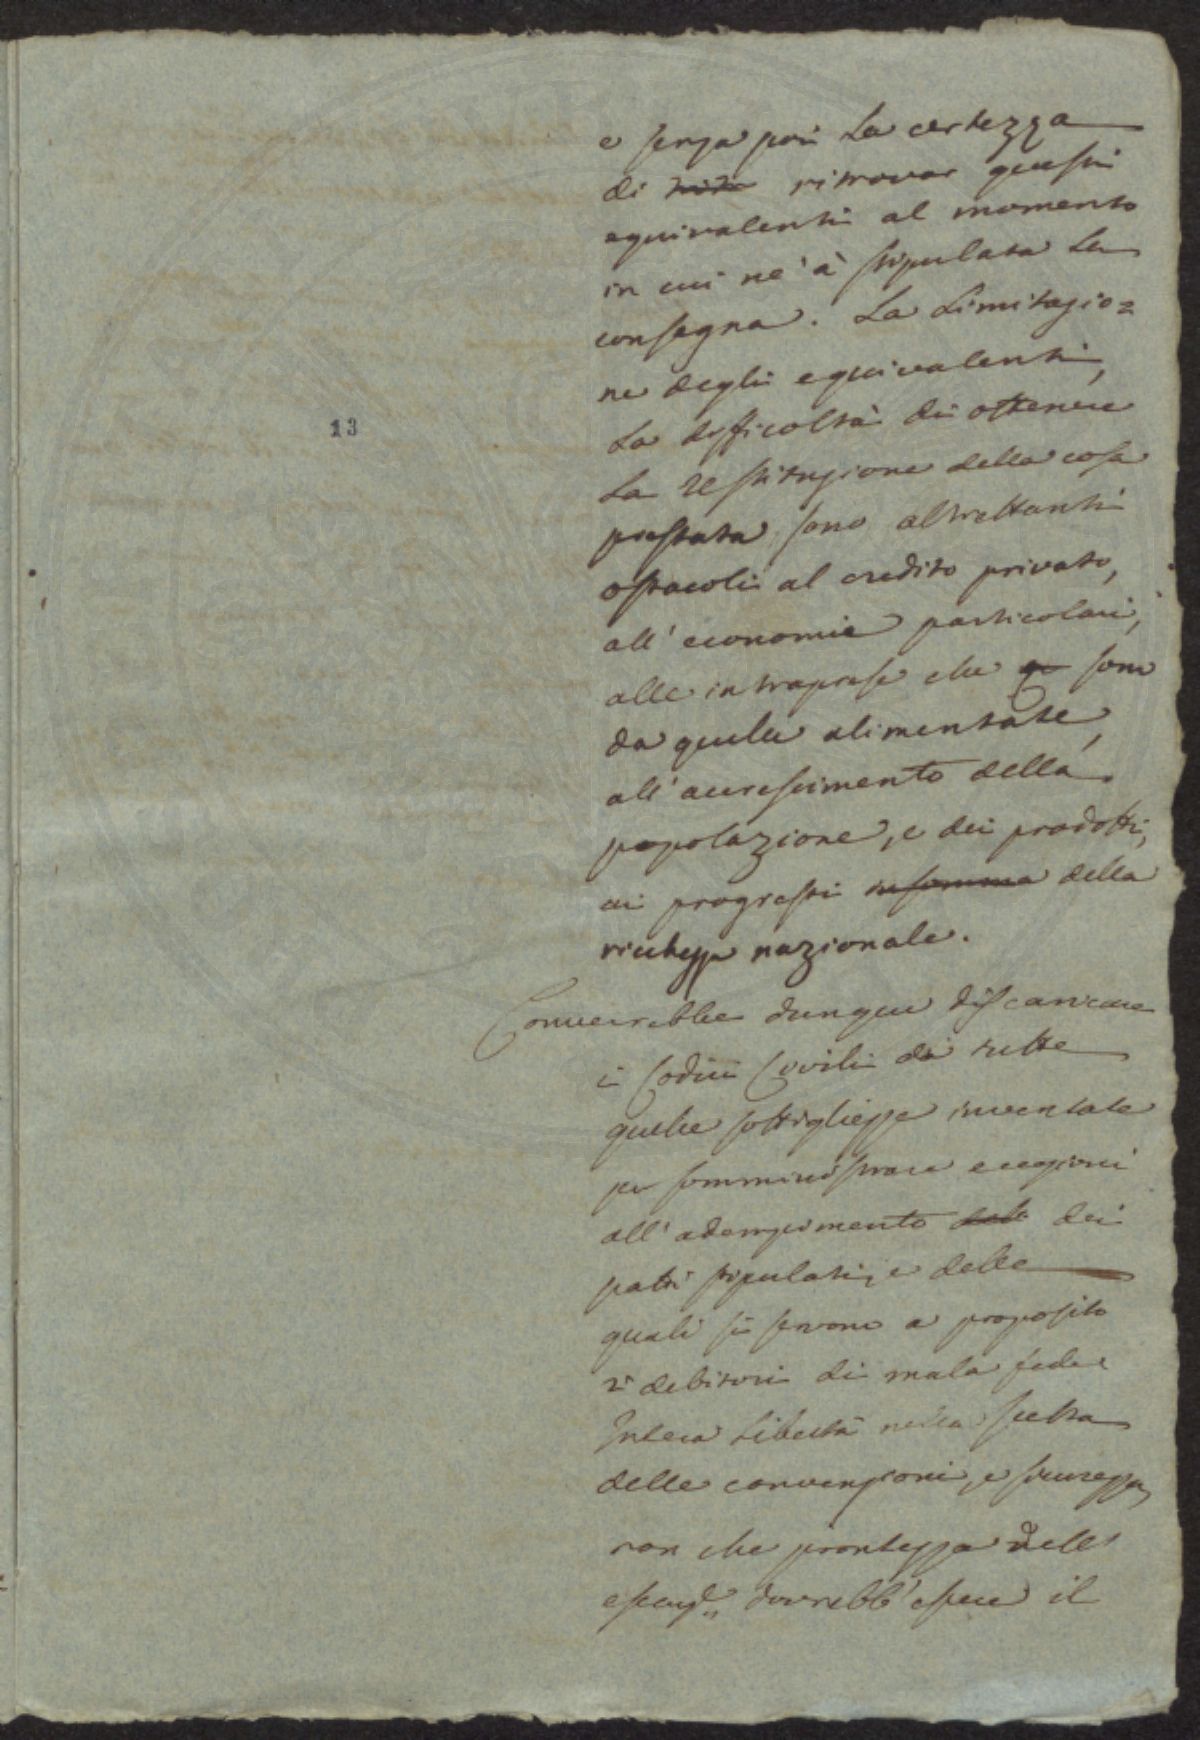 e senza poi la certezza
di ritrovar questi
equivalenti al momento
in cui ne è stipulata la
consegna. La limitazio=
ne degli equivalenti,
la difficoltà di ottenere
la restituzione della cosa
prestata sono altrettanti
ostacoli al credito privato,
all'economie particolari,
13
alle intraprese che sono
da quelle alimentate,
all'accrescimento della
popolazione, e dei prodotti,
ai progressi insomma della
ricchezza nazionale.
Converrebbe dunque discaricare
i Codici Civili di tutte
quelle sottigliezze inventate
per somministrare eccezioni
all'adempimento dei
patti stipulati, e delle
quali si servono a proposito
i debitori di mala fede
Intera libertà nella scelta
delle convenzioni, e sicurezza,
non che prontezza nell'
dovrebb'essere il